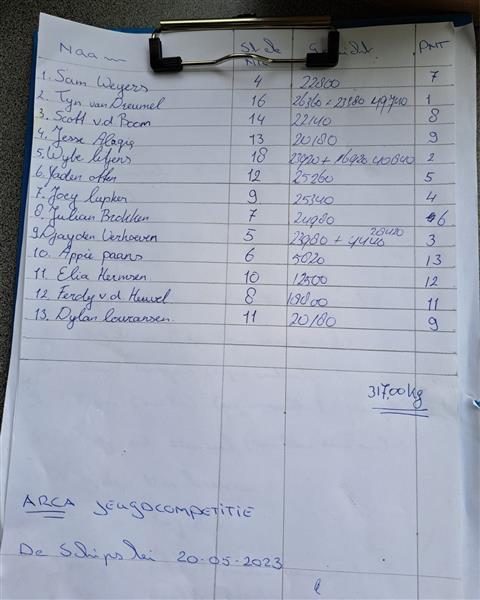 Naam St. de Nr. Gewicht PNT
1. Sam Weyers 4 22800 7
2. Tyn van Dreumel 16 26360 + 23380 49740 1
3. Scott v.d Boom 14 22140 8
4. Jesse 13 20180 9
5. Wybe 18 23920 + 16920 40840 2
6. Jaden 12 25260 5
7. Joey Lupker 9 25340 4
8. Julian Brokken 7 24980 6
9. Jayden Verhoeven 5 23980 + 4440 28420 3
10. Appie paans 6 5020 13
11. Elia Hermsen 10 12500 12
12. Ferdy v.d Heuvel 8 19800 11
13. Dylan Lourensen 11 20180 9
317,00 kg
ARCA JEUGDCOMPETITIE
De Schipslei 20-05-2023